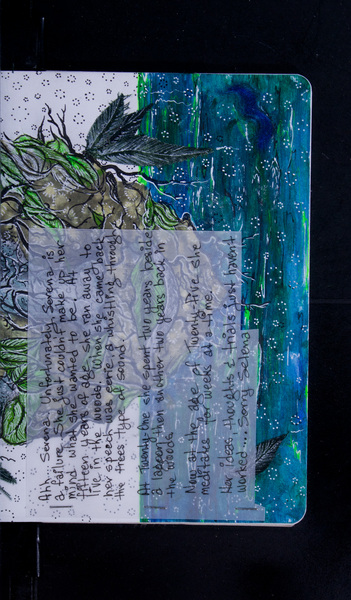 Ahh Serena. Unfortunately Serena is
a failure. She just couldn't make up her
mind what she wanted to be. At
fifteen years of age she ran away to
live in the woods. When she came back
her speech was eerie, a whistling through
the trees type of sound.
At Twenty-One she spent two years beside
a lagoon, then another two years back in
the woods.
Now at the age of Twenty-five she
meditates for weeks at a time.
Her ideas thoughts & trials just haven't
worked... Sorry Selena